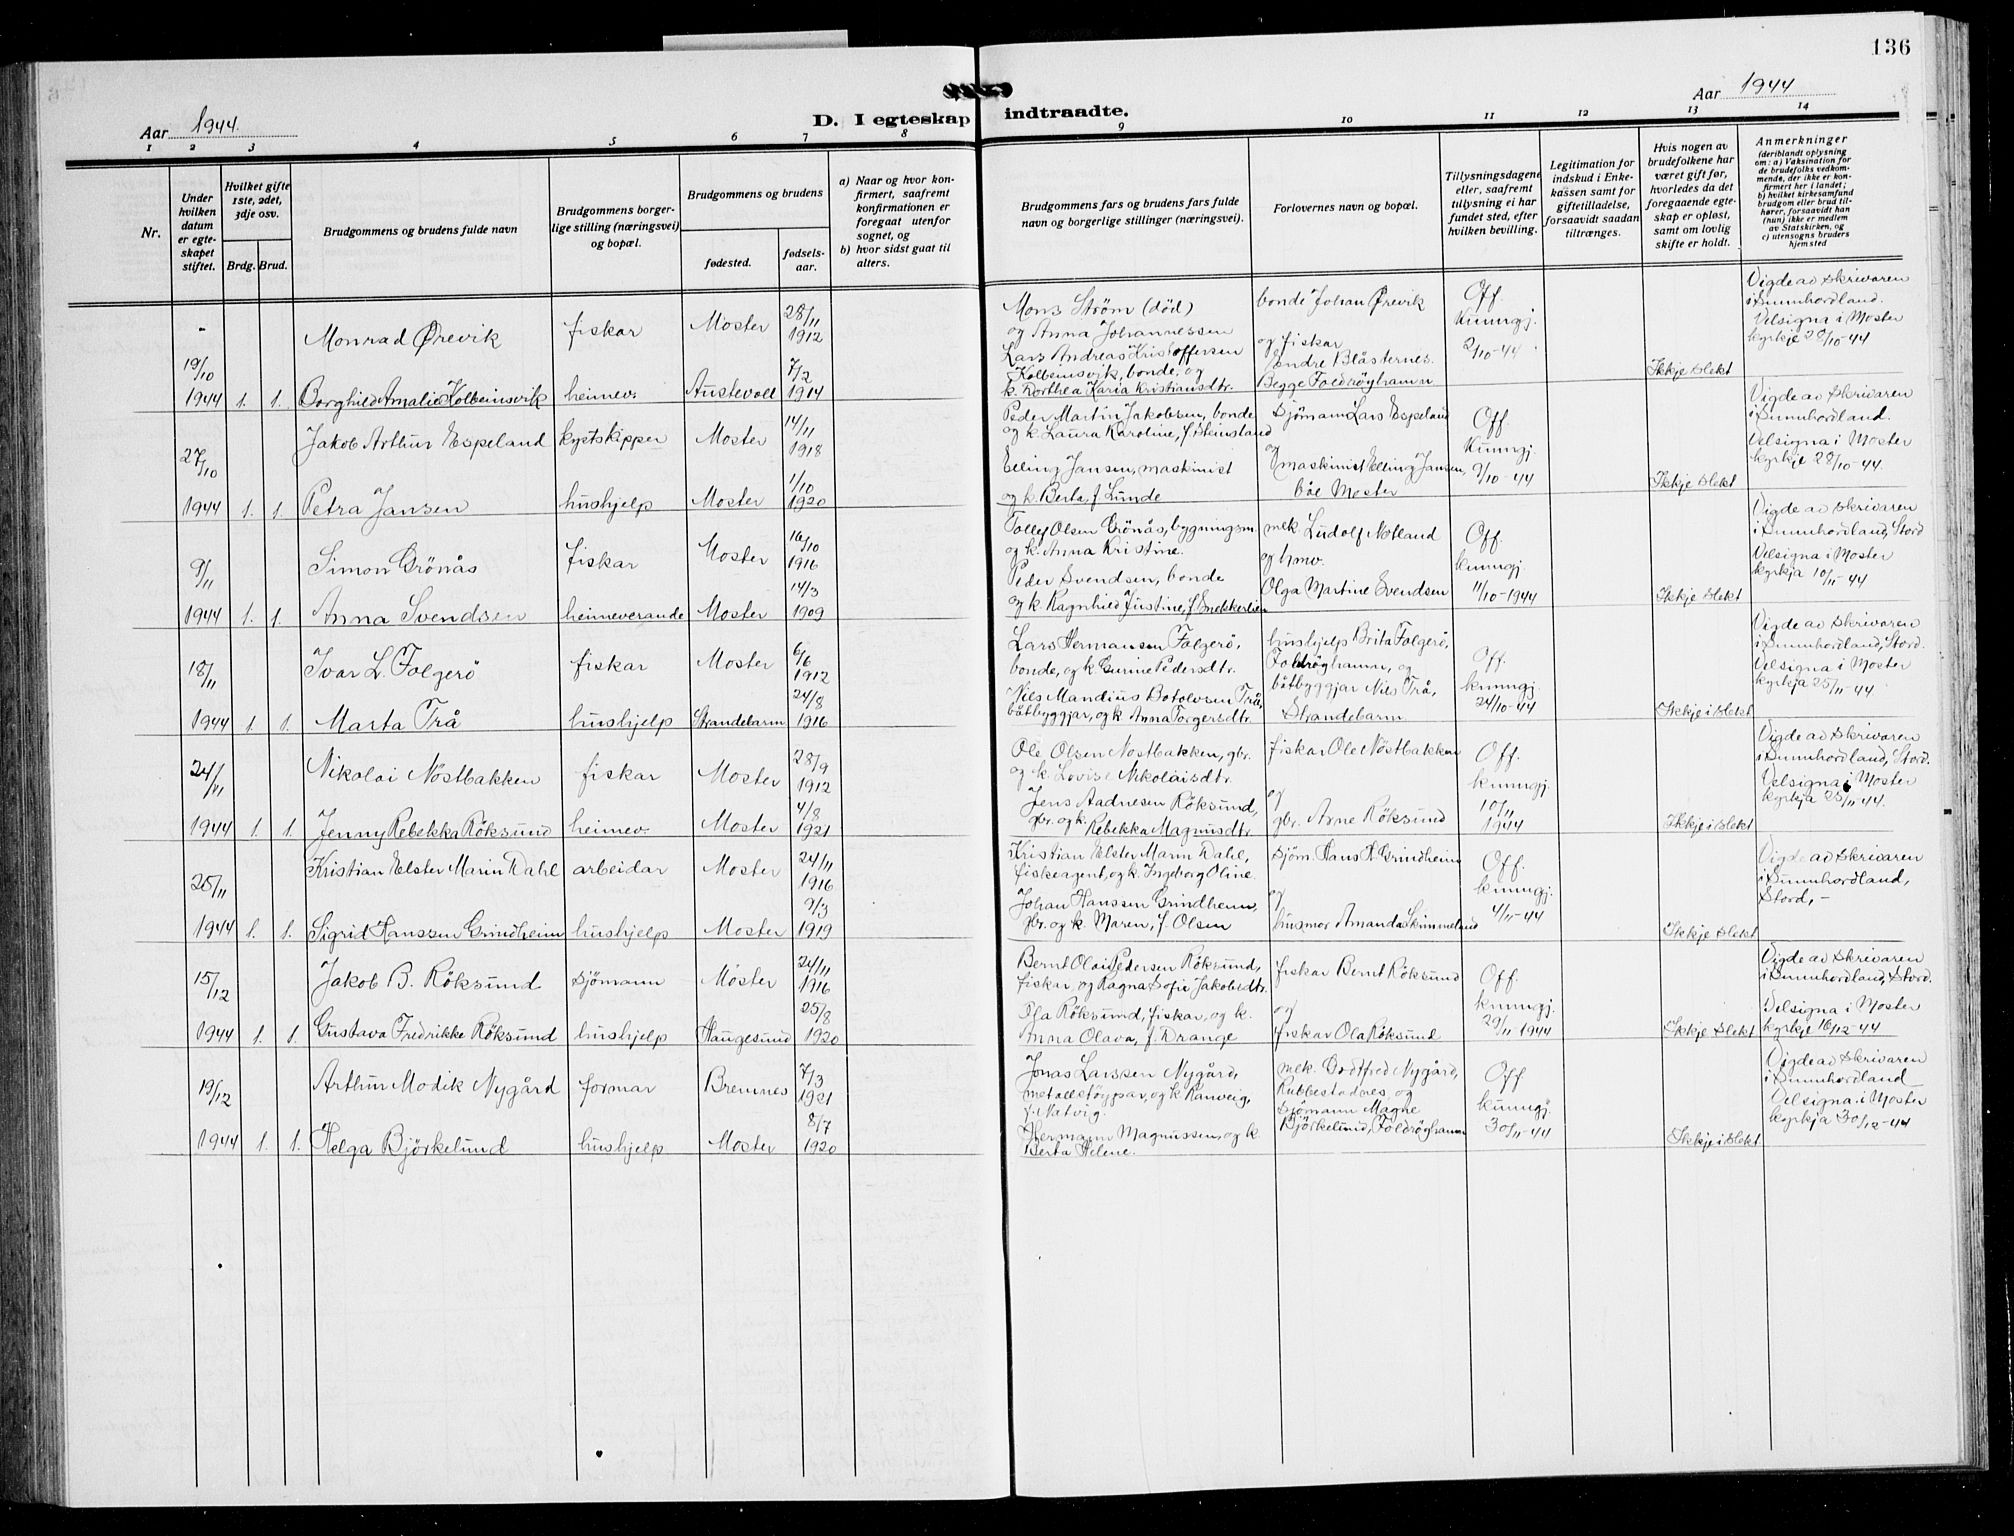 136
Aar 1944.
D. I egteskap indtraadte.
Aar 1944
1 2 3 4 5 6 7 8 9 10 11 12 13 14
Nr.
Under hvilken datum er egteskapet stiftet.
Hvilket gifte 1ste, 2det, 3dje osv.
Brdg. Brud.
Brudgommens og brudens fulde navn
Brudgommens borgerlige stilling (næringsvei) og bopæl.
Brudgommens og brudens
fødested.
fødselsaar.
a) Naar og hvor konfirmert, saafremt konfirmationen er foregaat utenfor sognet, og
b) hvor sidst gaat til alters.
Brudgommens fars og brudens fars fulde navn og borgerlige stillinger (næringsvei).
Forlovernes navn og bopæl.
Tillysningsdagene eller, saafremt tillysning ei har fundet sted, efter hvilken bevilling.
Legitimation for indskud i Enkekassen samt for giftetilladelse, forsaavidt saadan tiltrænges.
Hvis nogen av brudefolkene har været gift før, hvorledes da det foregaaende egteskap er opløst, samt om lovlig skifte er holdt.
Anmerkninger
(deriblandt oplysning om: a) Vaksination for de brudefolks vedkommende, der ikke er konfirmert her i landet; b) hvilket kirkesamfund brudgom eller brud tilhører, forsaavidt han (hun) ikke er medlem av Statskirken, og c) utensogns bruders hjemsted
19/10 1944 1. 1.
Monrad Ørevik fiskar Moster 28/11 1912
Borghild Amalie Kolbeinsvik heimev. Austevoll 7/2 1914
Mons Strøm (død)
og Anna Johannessen
Lars Andreas Kristoffersen
Kolbeinsvik, bonde, og
k. Dorthea Karia Kristiansdtr.
bonde Johan Ørevik
og fiskar
Endre Blåsternes.
Begge Foldrøyhamn
Off. kunngj. 2/10-44
Ikkje slekt
Vigde av skrivaren
i Sunnhordland.
Velsigna i Moster
kyrkje 20/10-44
27/10 1944 1. 1.
Jakob Arthur Espeland kystskipper Moster 14/11 1918
Petra Jansen hushjelp Moster 1/10 1920
Peder Martin Jakobsen, bonde
og k. Laura Karoline, f. Steinsland
Elling Jansen, maskinist
og k. Berta, f. Lunde
Sjömann Lars Espeland
og
maskinist Elling Jansen,
båe Moster
Off. kunngj. 9/10-44
Ikkje slekt
Vigde av skrivaren
i Sunnhordland.
Velsigna i Moster
kyrkje 28/10-44.
9/11 1944 1. 1.
Simon Grönås fiskar Moster 16/10 1916
Anna Svendsen heimeverande Moster 14/3 1909
Tolley Olsen Grönås, bygningsm.
og k. Anna Kristine.
Peder Svendsen, bonde
og k. Ragnhild Justine, f. Snekkerlien
mek. Ludolf Notland
og hmv.
Olga Martine Svendsen
Off. kunngj. 11/10-1944
Ikkje slekt
Vigde av skrivaren
i Sunnhordland, Stord
Velsigna i Moster
kyrkja 10/11-44
18/11 1944 1. 1.
Ivar L. Folgerö fiskar Moster 6/6 1912
Marta Trå hushjelp Strandebarm 24/8 1916
Lars Hermansen Folgerö,
bonde, og k. Gunne Pedersdtr.
Nils Mandius Botolvsen Trå,
båtbyggjar, og k. Anna Torgersdtr.
hushjelp Brita Folgerö,
Foldröyhamn, og
båtbyggjar Nils Trå,
Strandebarm
Off. kunngj. 24/10-44
Ikkje i slekt
Vigde av skrivaren
i Sunnhordland, Stord.
Velsigna i Moster
kyrkja 25/11-44
24/11 1944 1. 1.
Nikolai Nöstbakken fiskar Moster 28/9 1912
Jenny Rebekka Röksund heimev. Moster 4/8 1921
Ole Olsen Nöstbakken, gbr.
og k. Lovise Nikolaisdtr.
Jens Aadnesen Röksund,
gbr. og k. Rebekka Magnusdtr.
fiskar Ole Nöstbakken
og
gbr. Arne Röksund
Off. kunngj. 10/11 1944
Ikkje i slekt
Vigde av skrivaren
i Sunnhordland, Stord.
Velsigna i Moster
kyrkja 25/11-44.
25/11 1944 1. 1.
Kristian Elster Marin Dahl arbeidar Moster 24/11 1916
Sigrid Hanssen Grindheim hushjelp Moster 9/3 1919
Kristian Elster Marin Dahl,
fiskeagent, og k. Ingeborg Oline.
Johan Hanssen Grindheim,
gbr. og k. Maren, f. Olsen
sjöm. Hans H. Grindheim
og
husmor Amanda Skimmeland
Off. kunngj. 4/11-44
Ikkje slekt
Vigde av skrivaren
i Sunnhordland,
Stord, –
15/12 1944 1. 1.
Jakob B. Röksund sjömann Moster 24/11 1916
Gustava Fredrikke Röksund hushjelp Haugesund 25/8 1920
Bernt Olai Pedersen Röksund,
fiskar, og Ragna Sofie Jakobsdtr.
Ola Röksund, fiskar, og k.
Anna Olava, f. Drange
fiskar Bernt Röksund
og
fiskar Ola Röksund
Off. kunngj. 29/11-1944
Ikkje slekt
Vigde av skrivaren
i Sunnhordland, Stord.
Velsigna i Moster
kyrkje 16/12-44
19/12 1944 1. 1.
Arthur Modik Nygård formar Bremnes 7/3 1921
Helga Björkelund hushjelp Moster 8/7 1920
Jonas Larssen Nygård,
metalstöypar, og k. Ranveig,
f. Natvig.
Hermann Magnussen, og k.
Berta Helene.
mek. Godtfred Nygård,
Rubbestadnes, og
sjömann Magne
Björkelund, Foldröyhamn
Off kunngj. 30/11-44
Ikkje i slekt
Vigde av skrivaren
i Sunnhordland
Velsigna i Moster
kyrkja 30/12-44